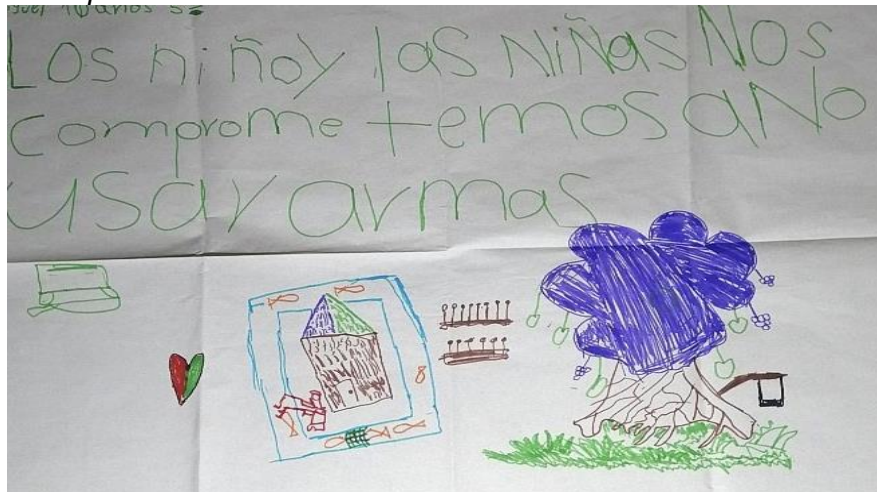 LOS niñoy las NiÑas NOS
comprometemos a No
usar armas